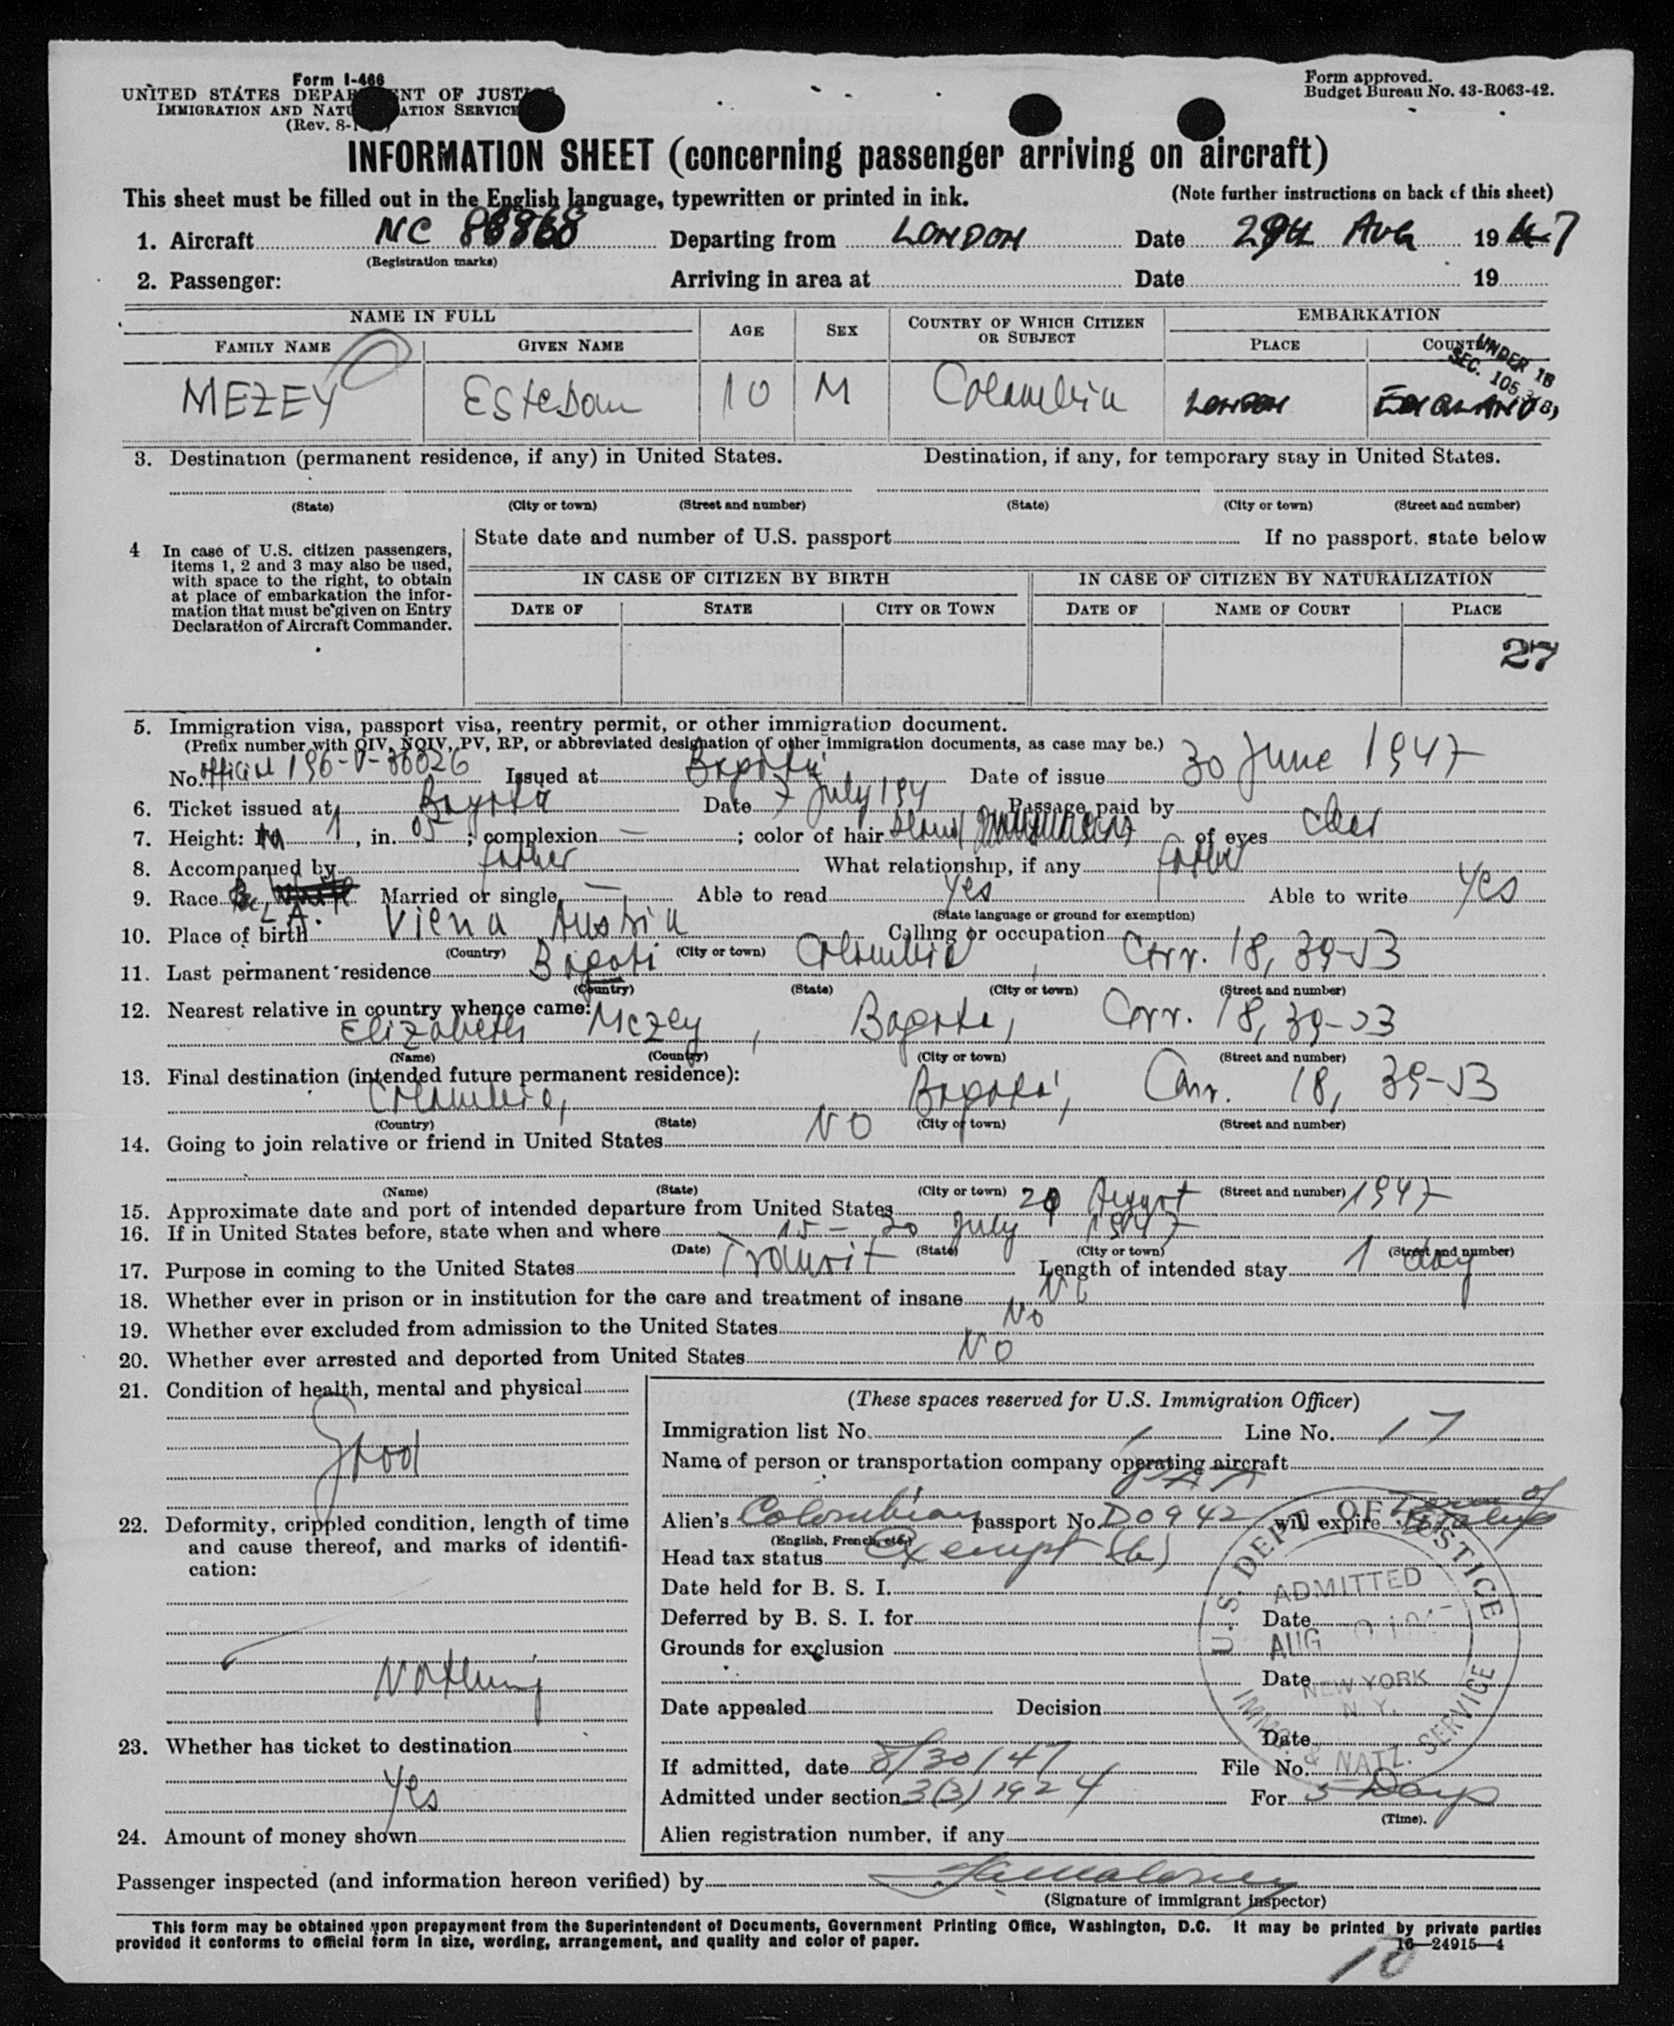 Form I-466
UNITED STATES DEPARTMENT OF JUSTICE
IMMIGRATION AND NATURALIZATION SERVICE
(Rev. 8-
Form approved.
Budget Bureau No. 43-R063-42.
INFORMATION SHEET (concerning passenger arriving on aircraft)
This sheet must be filled out in the English language, typewritten or printed in ink.
(Note further instructions on back of this sheet)
1. Aircraft NC 88868 Departing from LONDON Date 29th AUG 1947
(Registration marks)
2. Passenger: Arriving in area at Date 19
NAME IN FULL AGE SEX COUNTRY OF WHICH CITIZEN OR SUBJECT EMBARKATION
FAMILY NAME GIVEN NAME PLACE COUNTRY
UNDER 16
SEC. 105.3(B)
MEZEY Esteban 10 M Colombia LONDON ENGLAND
3. Destination (permanent residence, if any) in United States. Destination, if any, for temporary stay in United States.
(State) (City or town) (Street and number) (State) (City or town) (Street and number)
4 In case of U.S. citizen passengers, items 1, 2 and 3 may also be used, with space to the right, to obtain at place of embarkation the information that must be given on Entry Declaration of Aircraft Commander.
State date and number of U.S. passport If no passport, state below
IN CASE OF CITIZEN BY BIRTH IN CASE OF CITIZEN BY NATURALIZATION
DATE OF STATE CITY OR TOWN DATE OF NAME OF COURT PLACE
27
5. Immigration visa, passport visa, reentry permit, or other immigration document.
(Prefix number with QIV, NQIV, PV, RP, or abbreviated designation of other immigration documents, as case may be.)
No. official 196-V-36826 Issued at Bogotá Date of issue 30 June 1947
6. Ticket issued at Bogotá Date 7 July 194 Passage paid by
7. Height: m 1, in. 05; complexion —; color of hair blond of eyes clear
8. Accompanied by father What relationship, if any father
9. Race Married or single — Able to read yes Able to write yes
L.A. (State language or ground for exemption)
10. Place of birth Viena Austria Calling or occupation
(Country) (City or town)
11. Last permanent residence Bogotá Colombia, Carr. 18, 39-53
(Country) (State) (City or town) (Street and number)
12. Nearest relative in country whence came:
Elizabeth Mezey, Bogota, Carr. 18, 39-53
(Name) (Country) (City or town) (Street and number)
13. Final destination (intended future permanent residence):
Colombia, Bogotá, Carr. 18, 39-53
(Country) (State) (City or town) (Street and number)
14. Going to join relative or friend in United States NO
(Name) (State) (City or town) (Street and number)
15. Approximate date and port of intended departure from United States August 1947
16. If in United States before, state when and where 15 - 20 July 1947
(Date) (State) (City or town) (Street and number)
17. Purpose in coming to the United States Transit Length of intended stay 1 day
18. Whether ever in prison or in institution for the care and treatment of insane No
19. Whether ever excluded from admission to the United States No
20. Whether ever arrested and deported from United States No
21. Condition of health, mental and physical
Good
22. Deformity, crippled condition, length of time and cause thereof, and marks of identification:
Nothing
23. Whether has ticket to destination
Yes
24. Amount of money shown
(These spaces reserved for U.S. Immigration Officer)
Immigration list No. 1 Line No. 17
Name of person or transportation company operating aircraft
PAA
Alien's Colombian passport No. D0942 will expire
(English, French, etc.)
Head tax status Exempt (b)
Date held for B. S. I.
Deferred by B. S. I. for Date
Grounds for exclusion
Date
Date appealed Decision
Date
If admitted, date 8/30/47 File No.
Admitted under section 3(3) 1924 For 5 Days
(Time).
Alien registration number, if any
U. S. DEPT. OF JUSTICE
ADMITTED
AUG
NEW YORK
N. Y.
IMMG. & NATZ. SERVICE
Passenger inspected (and information hereon verified) by
(Signature of immigrant inspector)
This form may be obtained upon prepayment from the Superintendent of Documents, Government Printing Office, Washington, D.C. It may be printed by private parties
provided it conforms to official form in size, wording, arrangement, and quality and color of paper.
16—24915—4
10